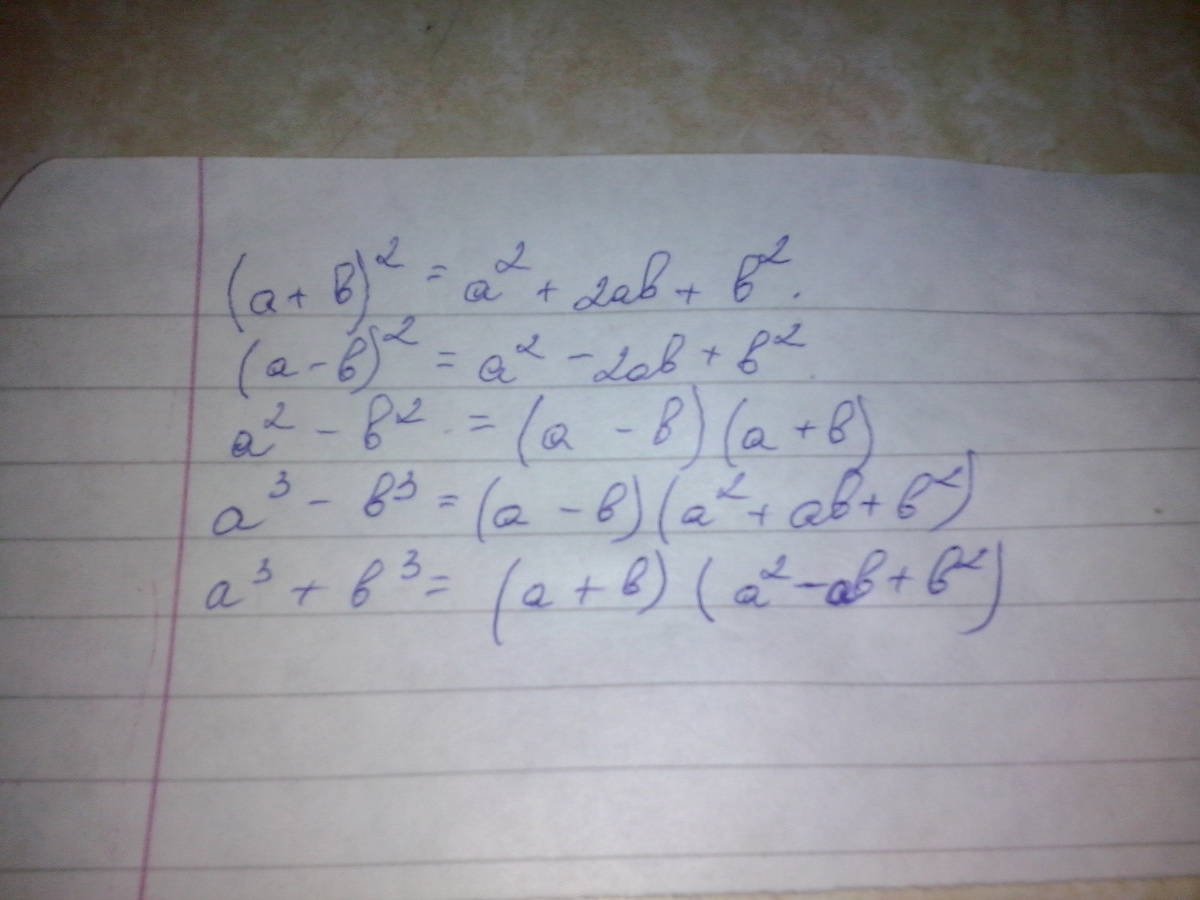 (a+b)² = a² + 2ab + b².
(a-b)² = a² - 2ab + b²
a² - b² = (a - b)(a + b)
a³ - b³ = (a - b)(a² + ab + b²)
a³ + b³ = (a + b)(a² - ab + b²)